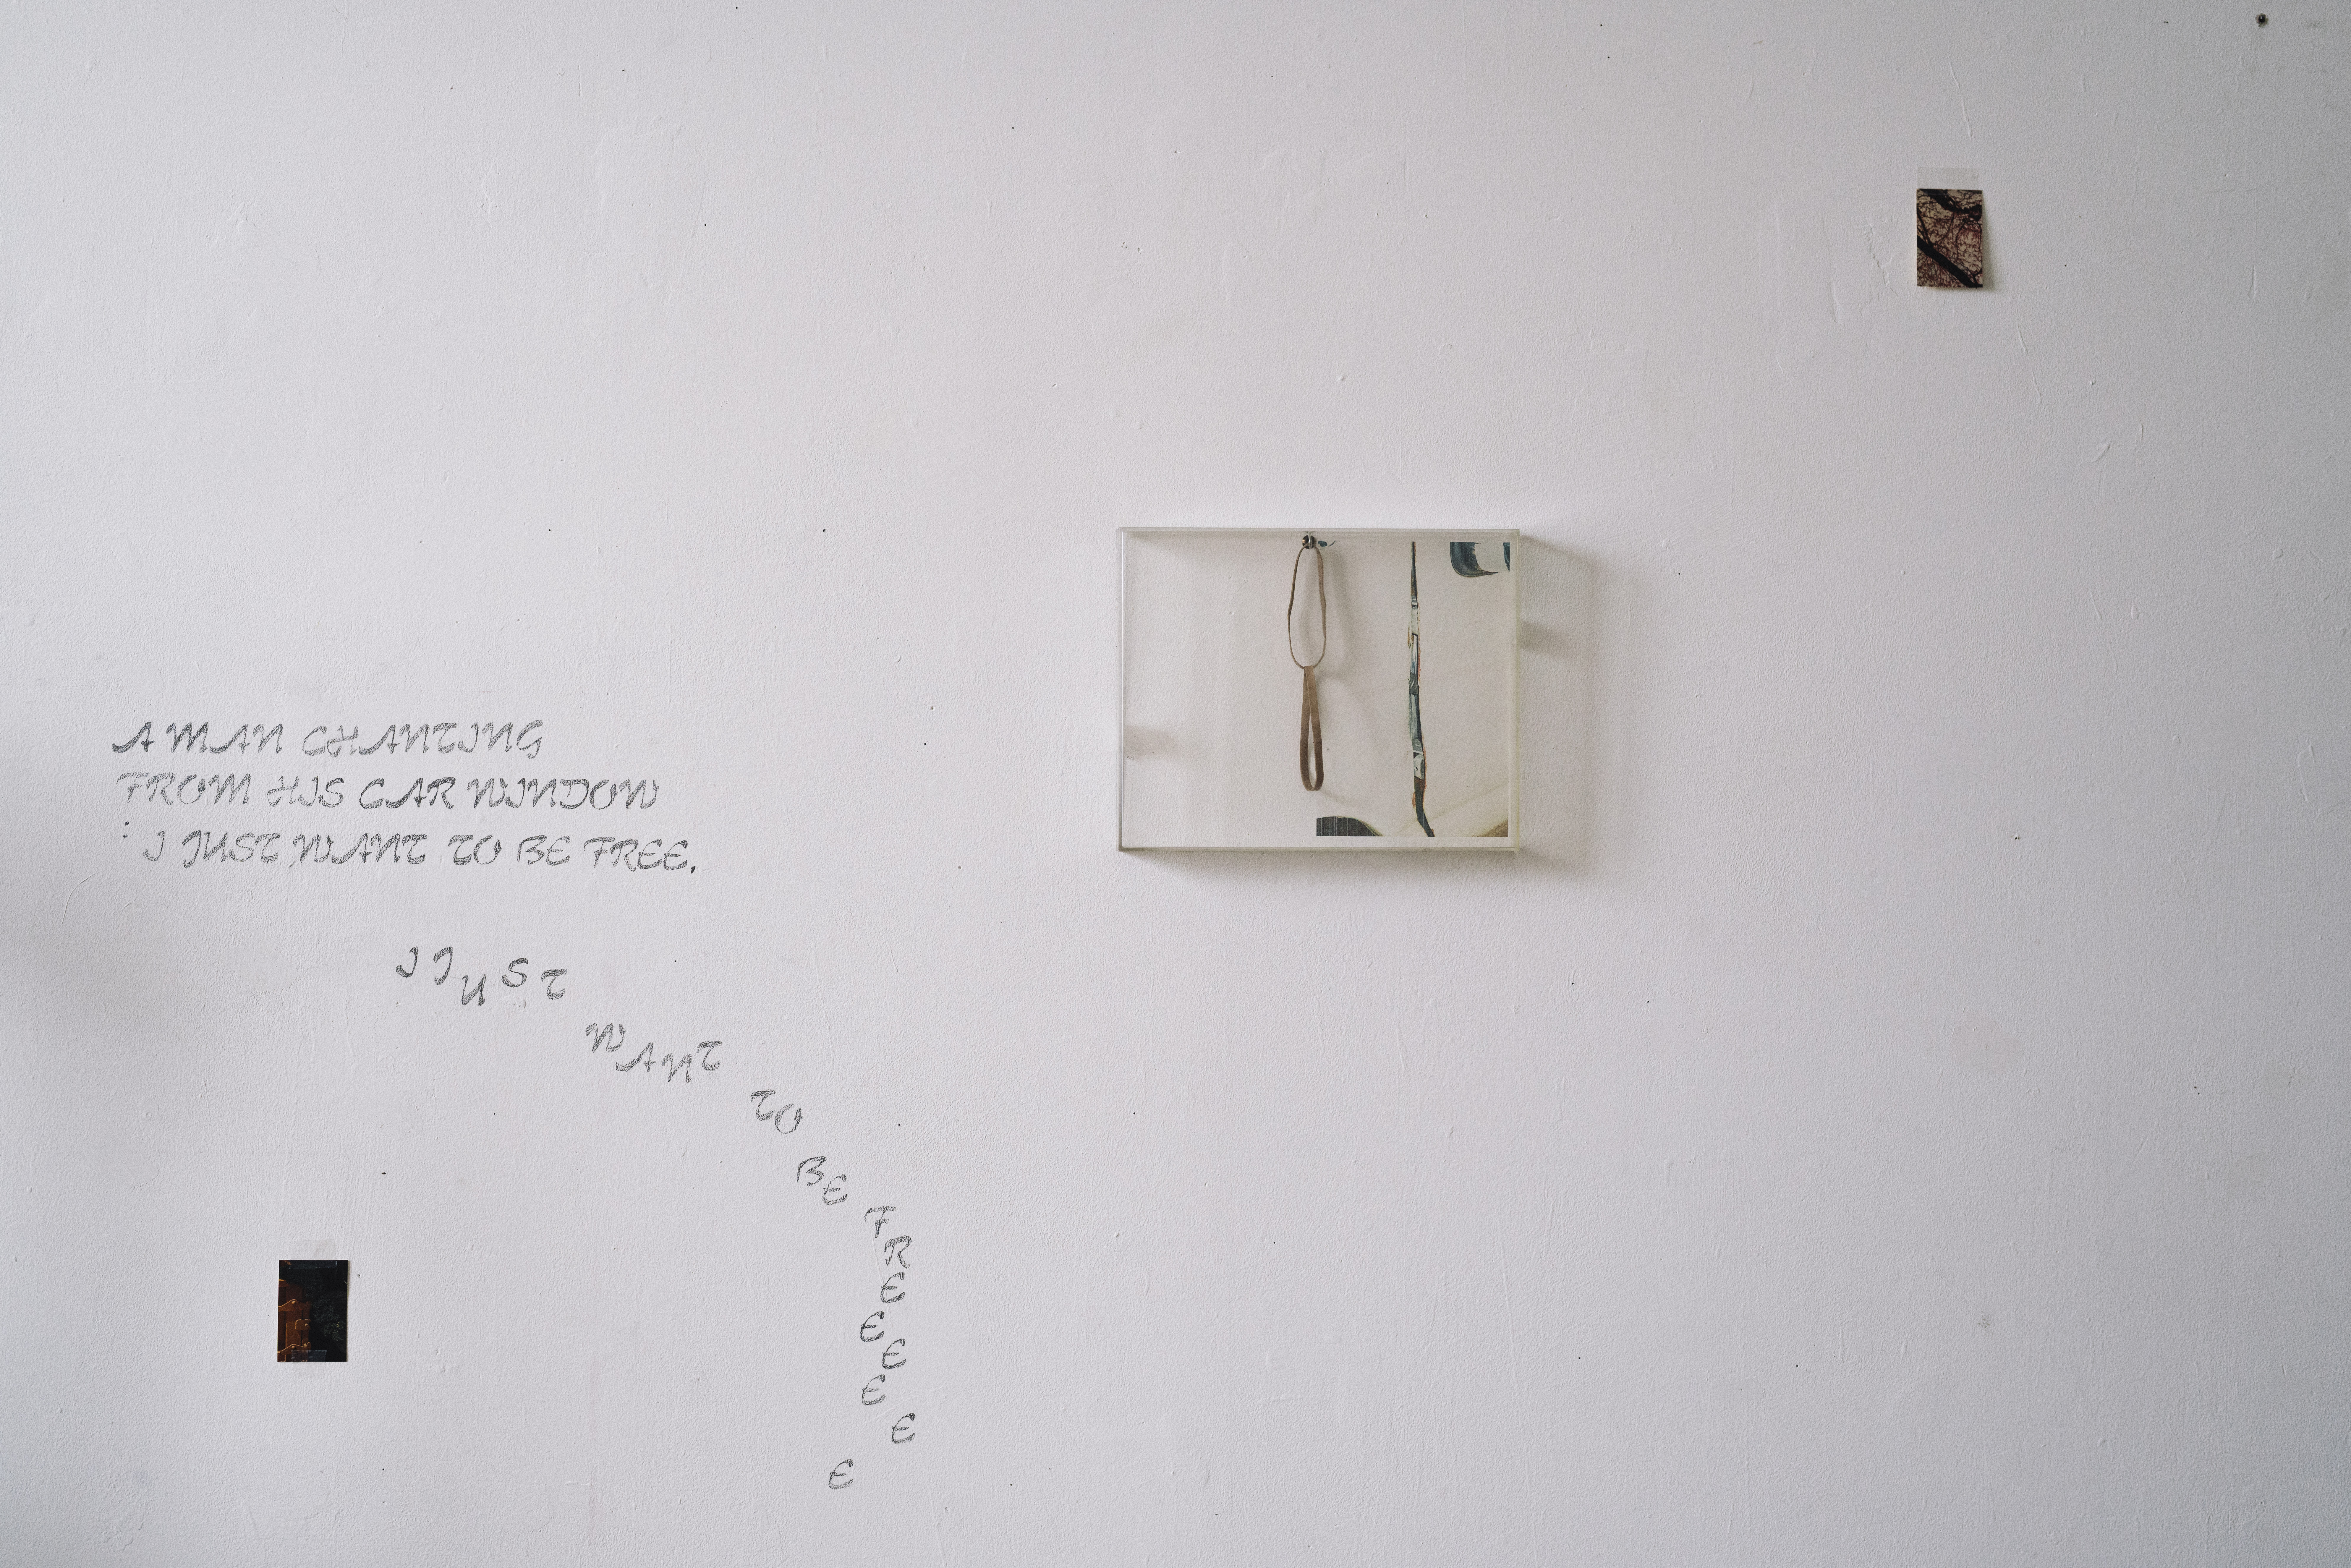 A MAN CHANTING
FROM HIS CAR WINDOW
: I JUST WANT TO BE FREE.
I JUST
WANT
TO
BE
FREEEEEE